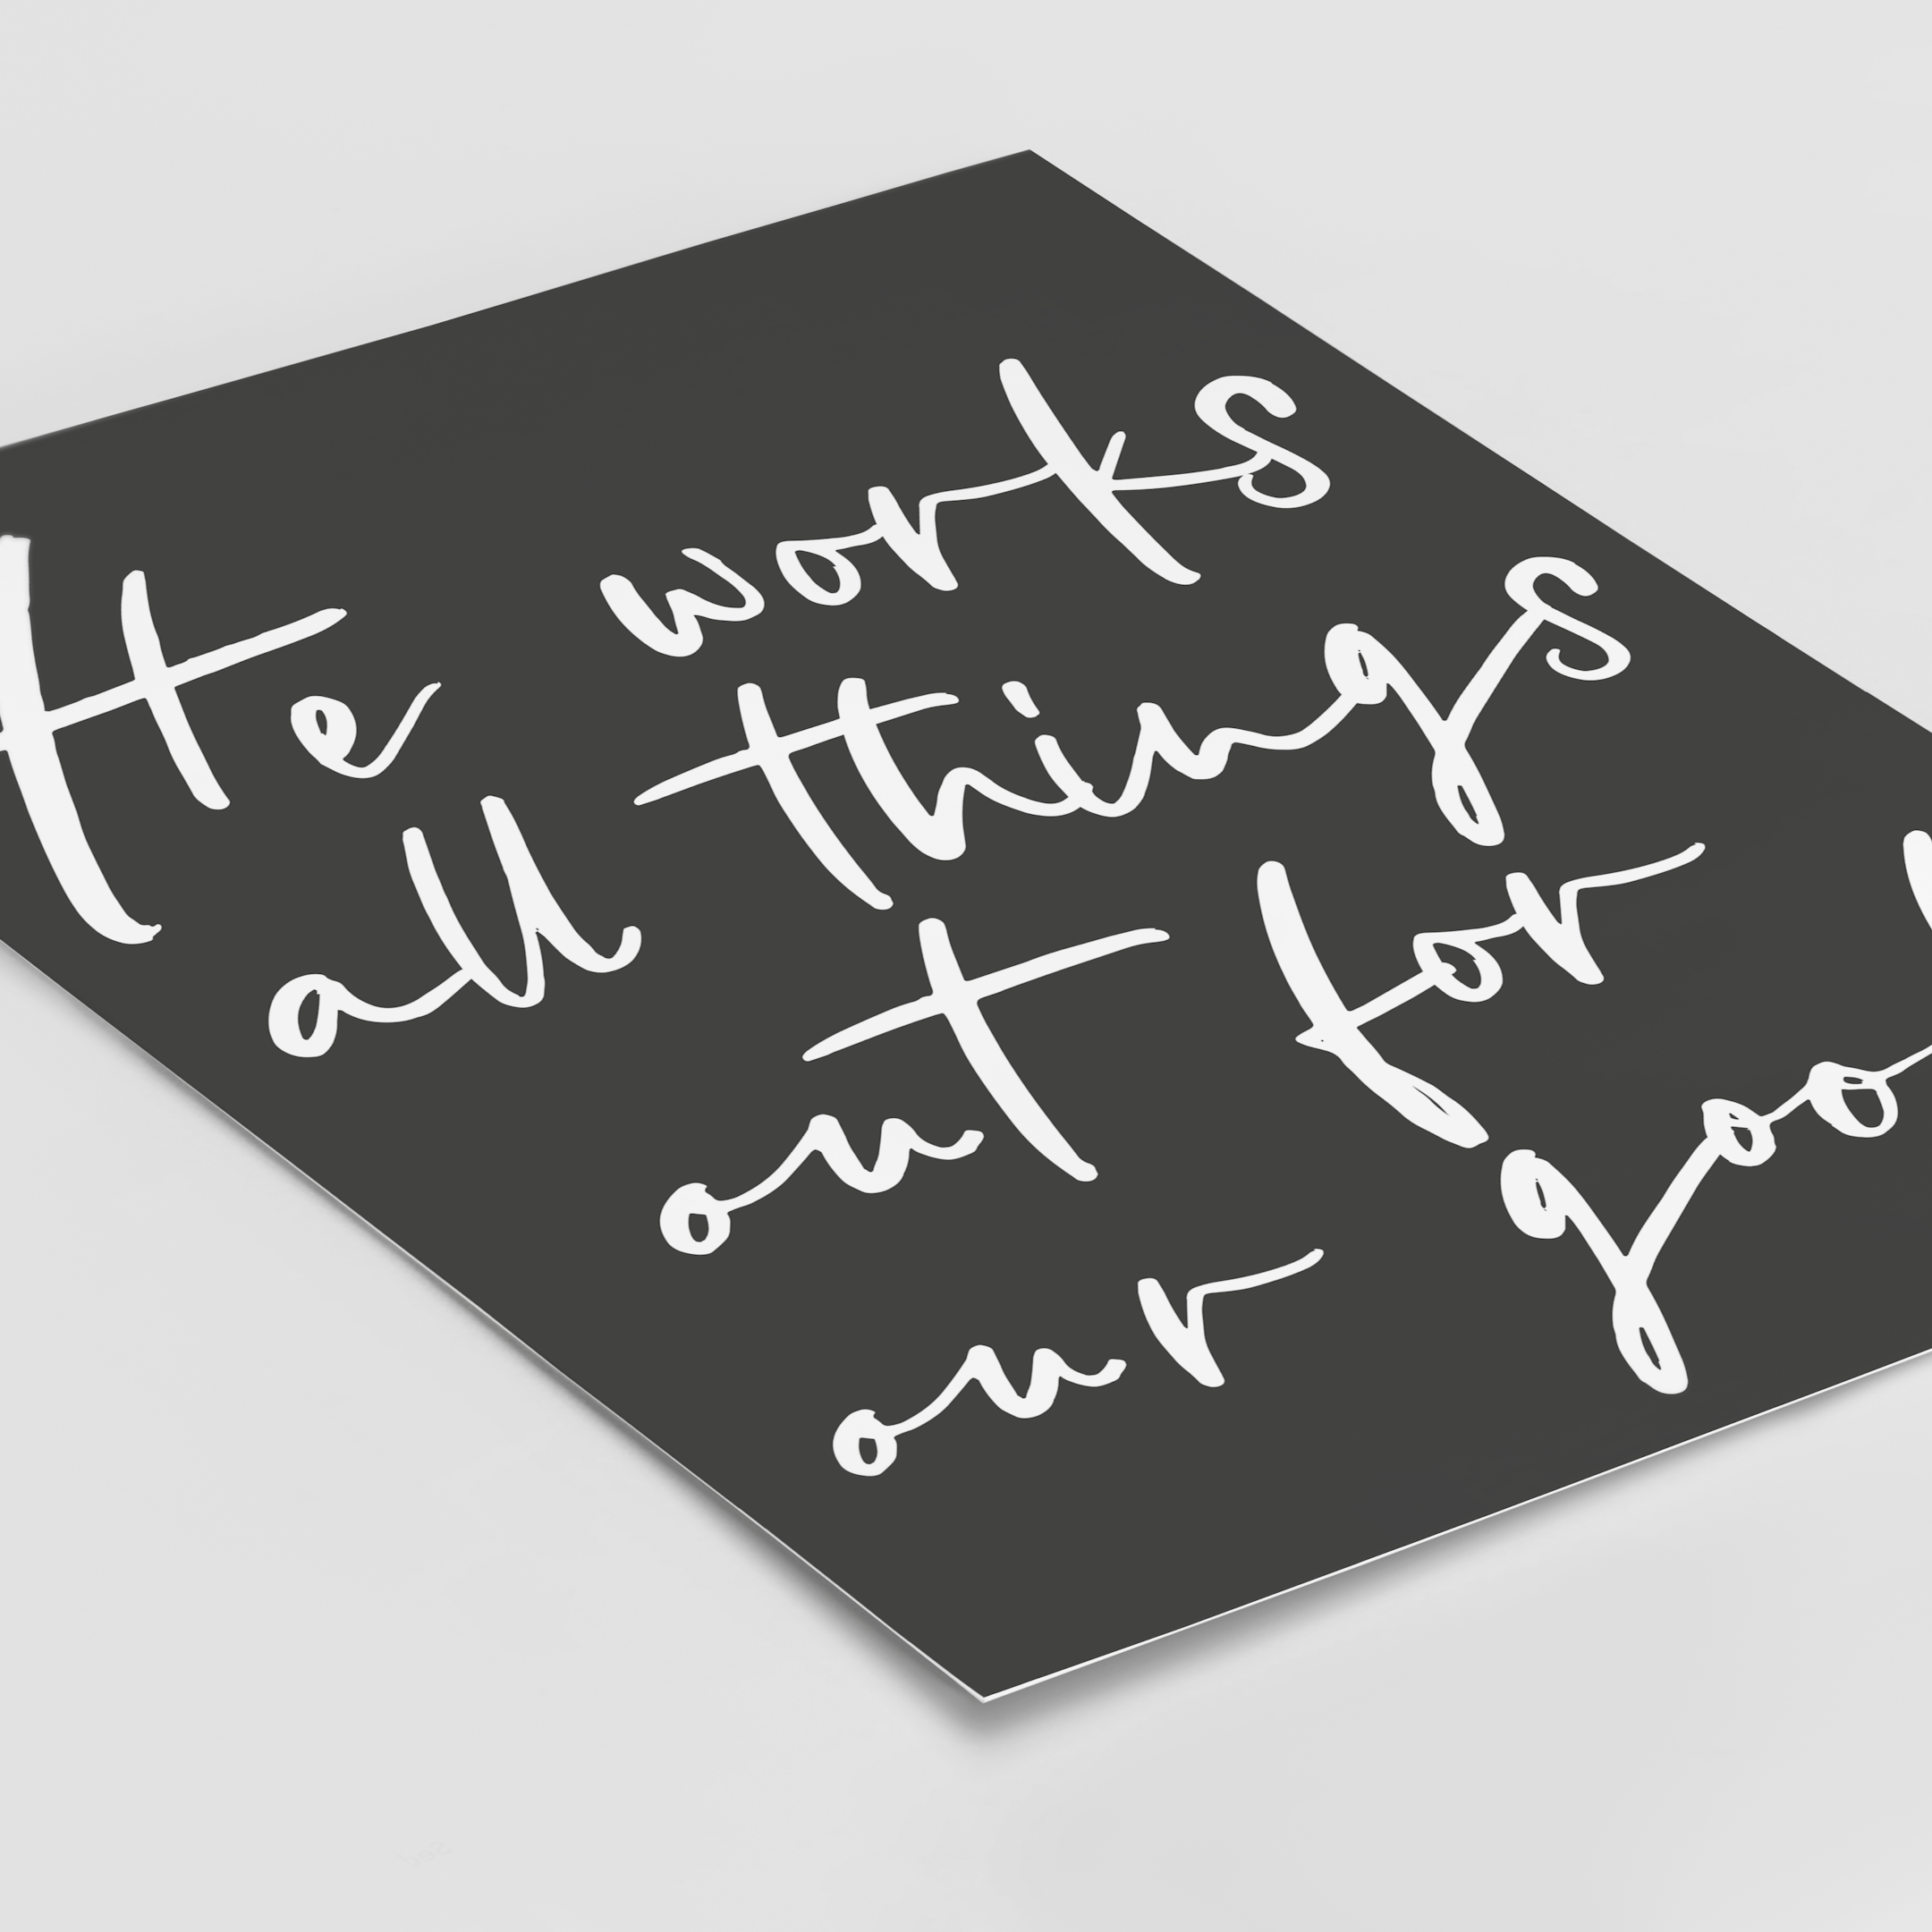 He works
all things
out for
our goo